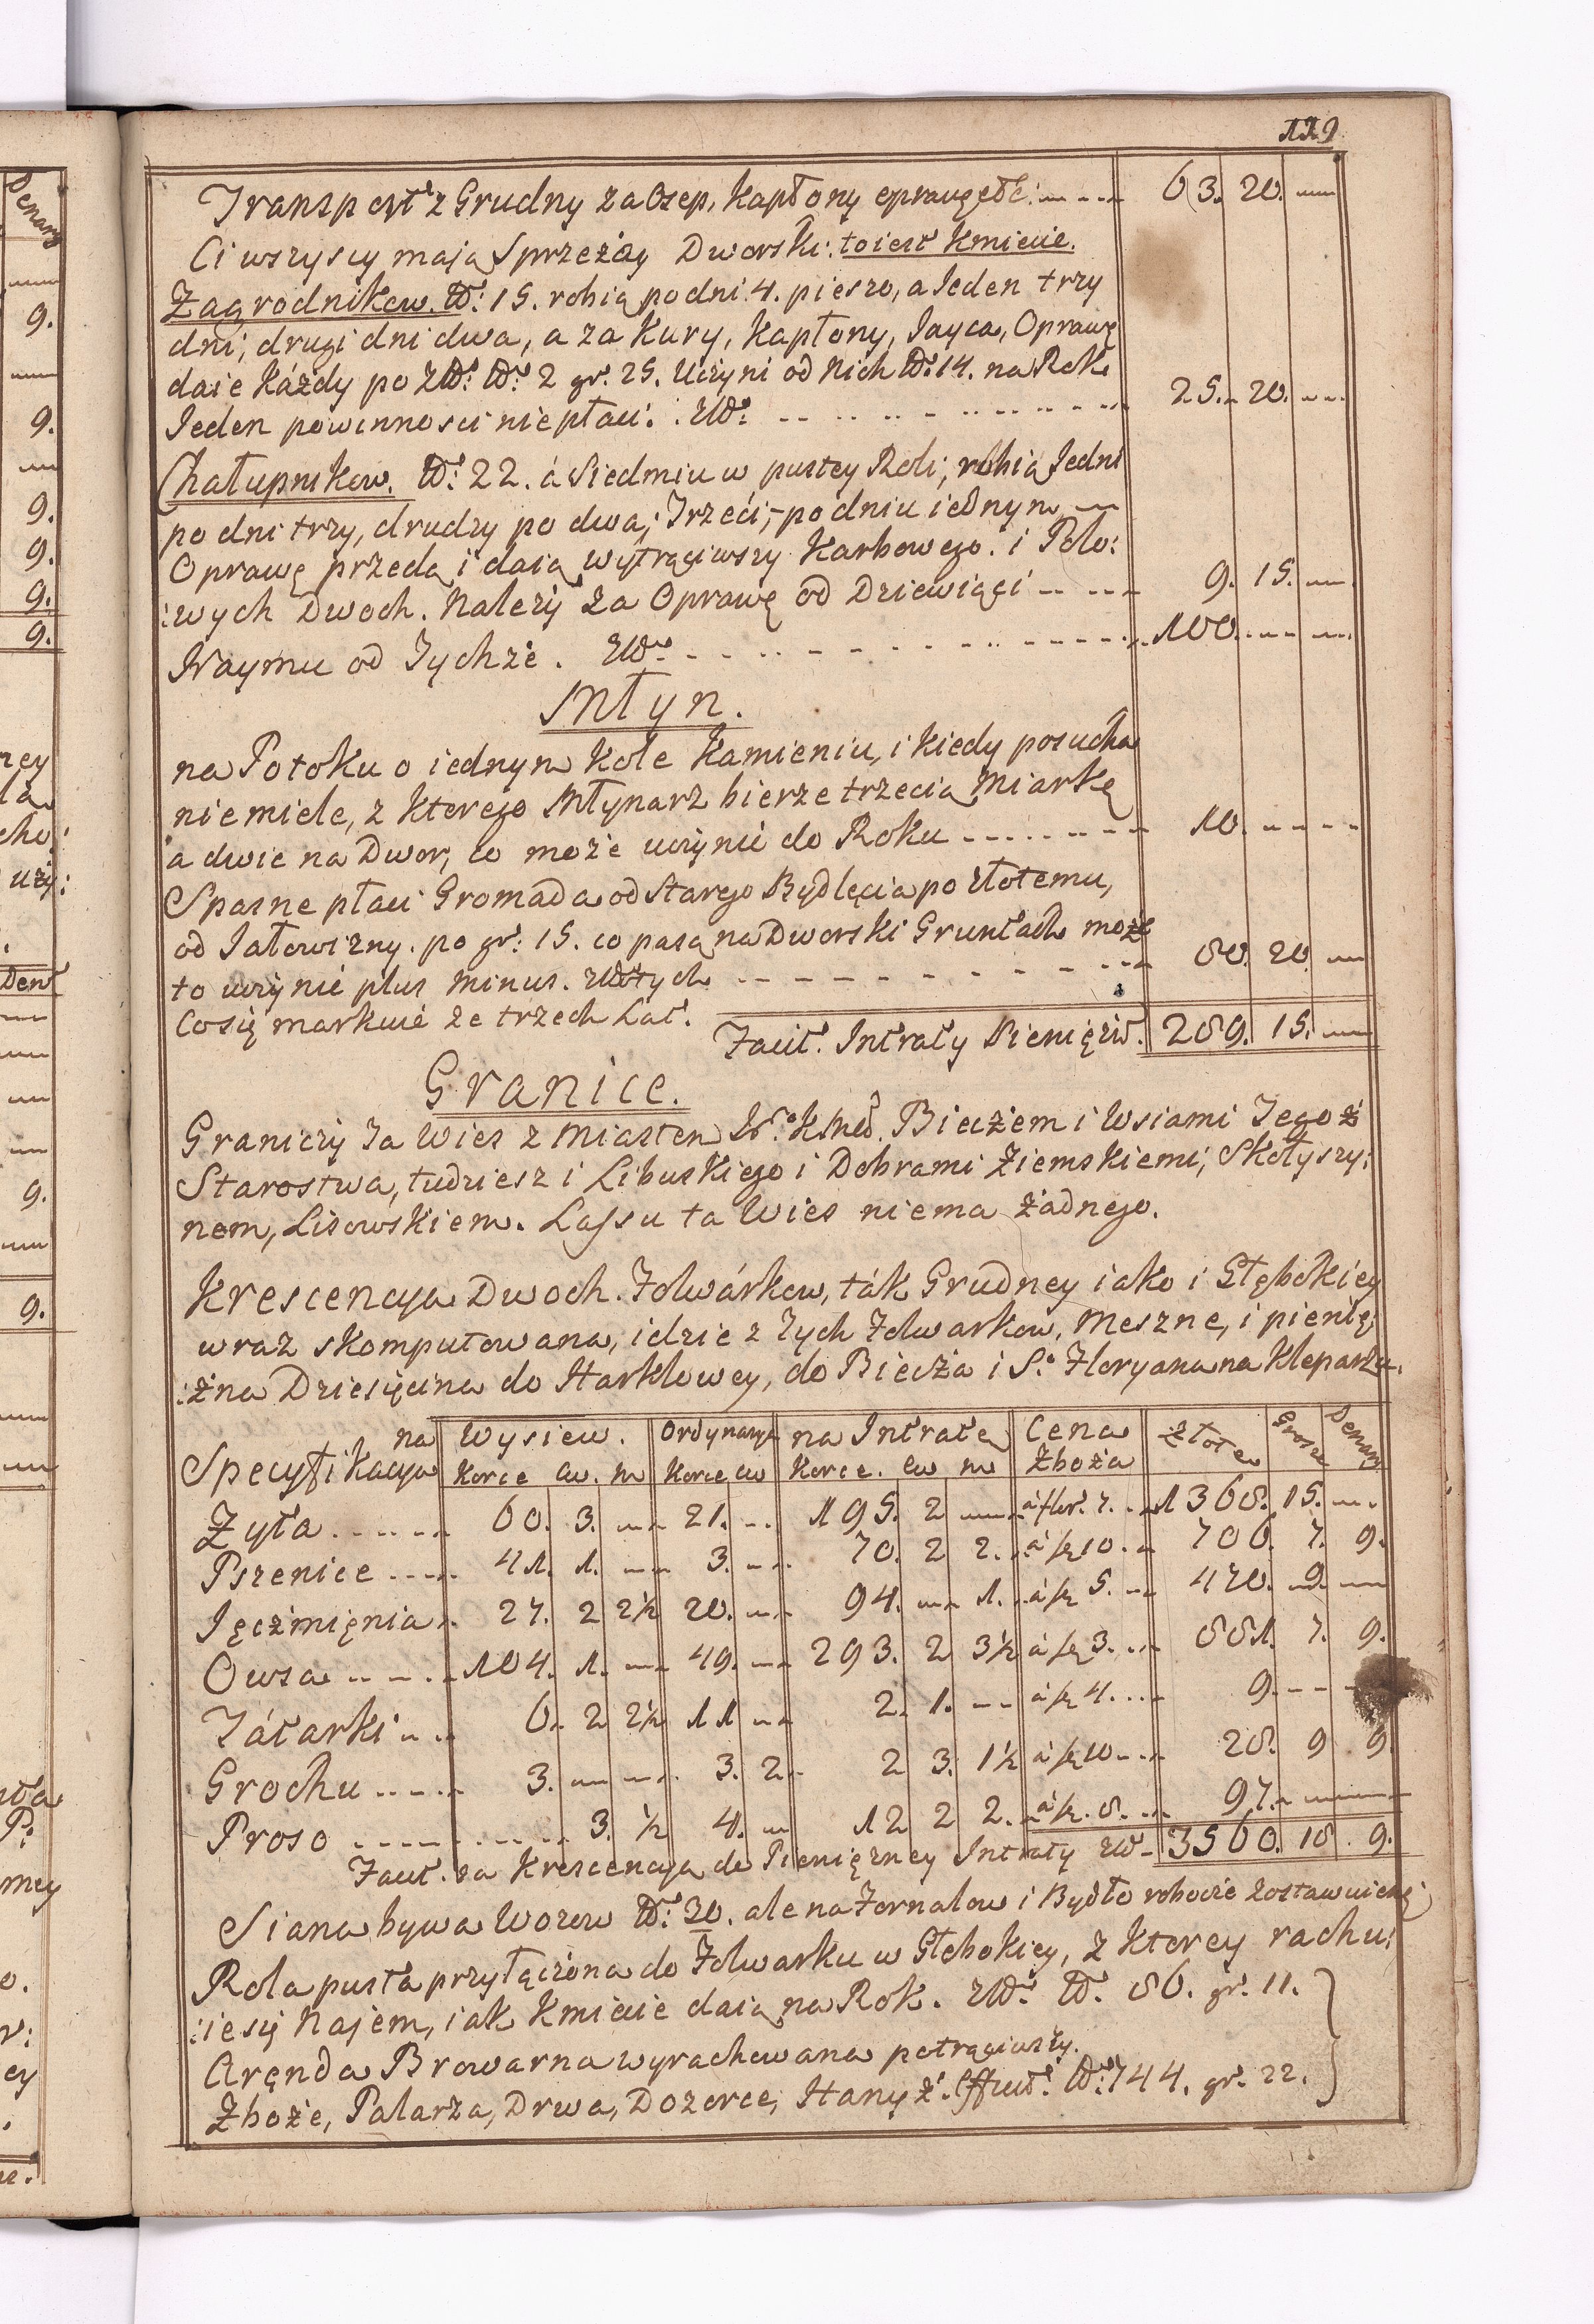 119
Transport z Grudny za Osep, Kapłony oprawę etc: 63. 20. —
Ci wszyscy maią Sprzeżay Dworski: to iest Kmiecie.
Zagrodnikow. No: 15. robią po dni 4. pieszo, a Ieden trzy
dni, drugi dni dwa, a za Kury, Kapłony, Iayca, Oprawę
daie káżdy po Zł: 2 gr. 25. Uczyni od Nich No: 14. na Rok
Ieden powinnosci niepłaci. Zł: 25. 20. —
Chałupnikow. No: 22. á Siedmiu w pustey Roli, robią Iedni
po dni trzy, drudzy po dwa; Trzeci, po dniu iednym —
Oprawę przedą i daią wytrąciwszy Karbowego. i Polo:
:wych Dwoch. Należy za Oprawę od Dziewiąci 9. 15. —
Naymu od Tychże. Zł: 100. — —
Młyn.
na Potoku o iednym Kole Kamieniu, i kiedy posucha
niemiele, z ktorego Młynarz bierze trzecią Miarkę
a dwie na Dwor, co może uczynić do Roku 10. — —
Spasne płaci Gromada od Starego Bydlęcia po złotemu,
od Iałowizny. po gr: 15. co pasą na Dworski Gruntach może
to uczynić plus minus. Złotych 80. 20. —
Co się markuie ze trzech Lat.
Facit. Intraty Pieniężn. 289. 15. —
Granice.
Graniczy Ta Wies z Miastem Bieczem i Wsiami Tegoż
Starostwa, tudziesz i Libuskiego i Dobrami Ziemskiemi, Skołyszy:
nem, Lisowskiem. Lassu ta Wies niema żadnego.
Krescencya Dwoch. Folwárkow, ták Grudney iako i Głębokiey
wraz skomputowana, idzie z Tych Folwarkow, Meszne, i pienię:
:żna Dziesięcina do Harklowey, do Biecza i S. Floryana na Kleparzu.
Specyfikacya na Wysiew. Ordynaryą na Intratę Cena Zboża Złote Grosze Denary
Korce cw. m Korce cw Korce. cw m
Zyta 60. 3. — 21. — 195. 2 — á flor. 7. 1368. 15. —
Pszenice 41. 1. — 3. — 70. 2 2. á fl 10. 706. 7. 9.
Ięczmięnia 27. 2 2½ 20. — 94. — 1. á fl 5. 470. 9. —
Owsa 104. 1. — 49. — 293. 2 3½ á fl 3. 881. 7. 9.
Tátarki 6. 2 2½ 11 — 2. 1. — á fl 4. 9. — —
Grochu 3. — — 3. 2. 2 3. 1½ á fl 10. 28. 9 9.
Proso 3. ½ 4. — 12 2 2. á fl. 8. 97. — —
Facit. za Krescencyą do Pieniężney Intraty Zł 3560. 18. 9.
Siana bywa Wozow No: 20. ale na Fornalow i Bydło robocie zostawuie się
Rola pusta przyłączona do Folwarku w Głebokiey, z ktorey rachu:
:ie się Najem, iak Kmiecie daią na Rok. Zł: No. 86. gr. 11.
Aręnda Browarna wyrachowana potrąciwszy.
Zboże, Palarza, Drwa, Dozorce, Hanyż. Effucit. No: 744. gr. 22.